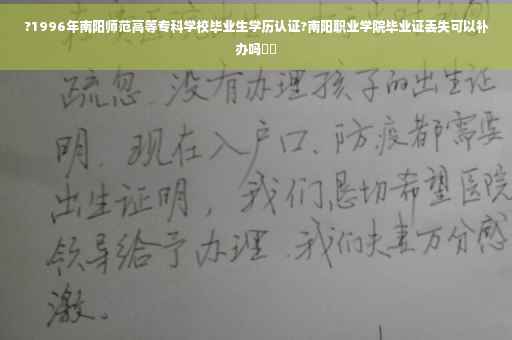 ?1996年南阳师范高等专科学校毕业生学历认证?南阳职业学院毕业证丢失可以补
办吗
疏忽、没有办理孩子的出生证
明、现在入户口、防疫都需要
出生证明，我们恳切希望医院
领导给予办理、我们夫妻万分感
激。